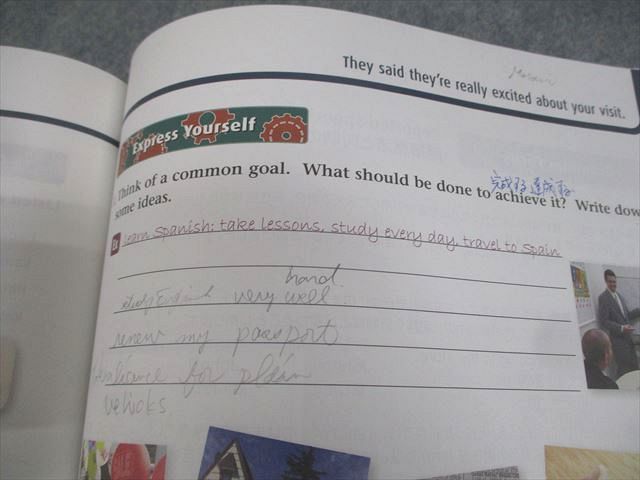 They said they're really excited about your visit.
Express Yourself
Think of a common goal. What should be done to achieve it? Write dow
some ideas.
Ex Learn Spanish: take lessons, study every day, travel to Spain
hard
study English very well
renew my passport
for